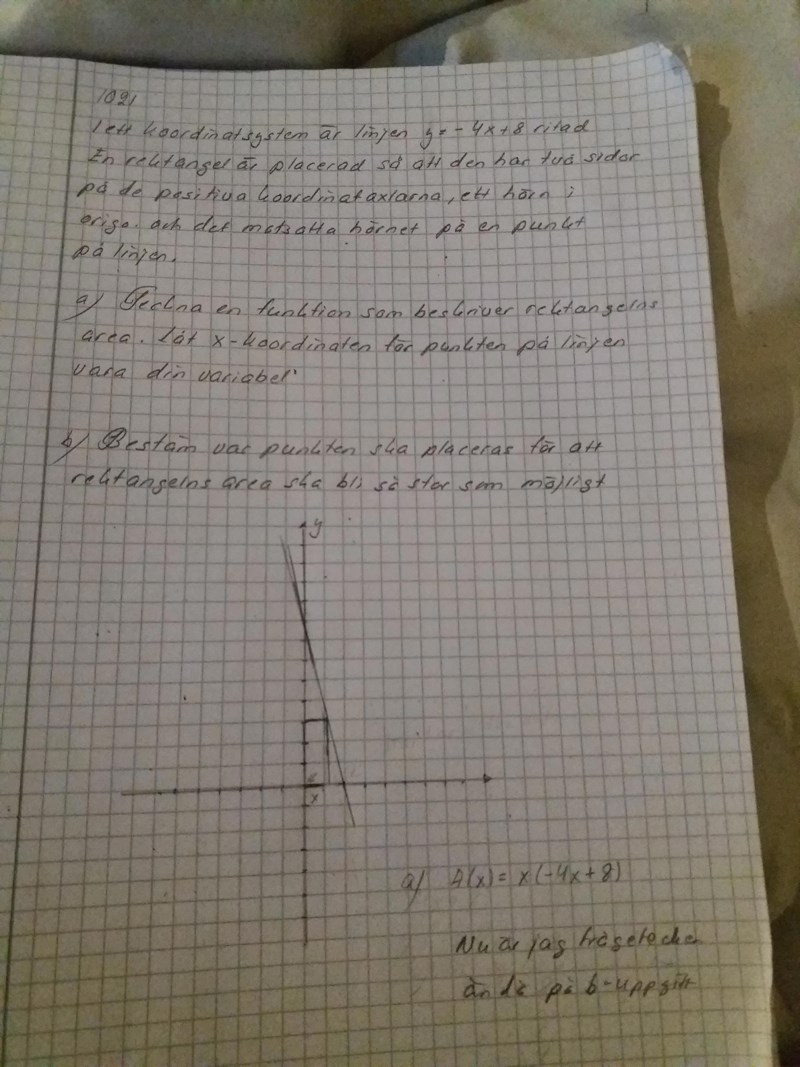 1021
I ett koordinatsystem är linjen y = -4x+8 ritad
En rektangel är placerad så att den har två sidor
på de positiva koordinataxlarna, ett hörn i
origo. och det motsatta hörnet på en punkt
på linjen.
a) Teckna en funktion som beskriver rektangelns
area. Låt x-koordinaten för punkten på linjen
vara din variabel
b) Bestäm var punkten ska placeras för att
rektangelns area ska bli så stor som möjligt
y
x
a) A(x) = x(-4x+8)
Nu är jag frågetecken
ända på b-uppgift